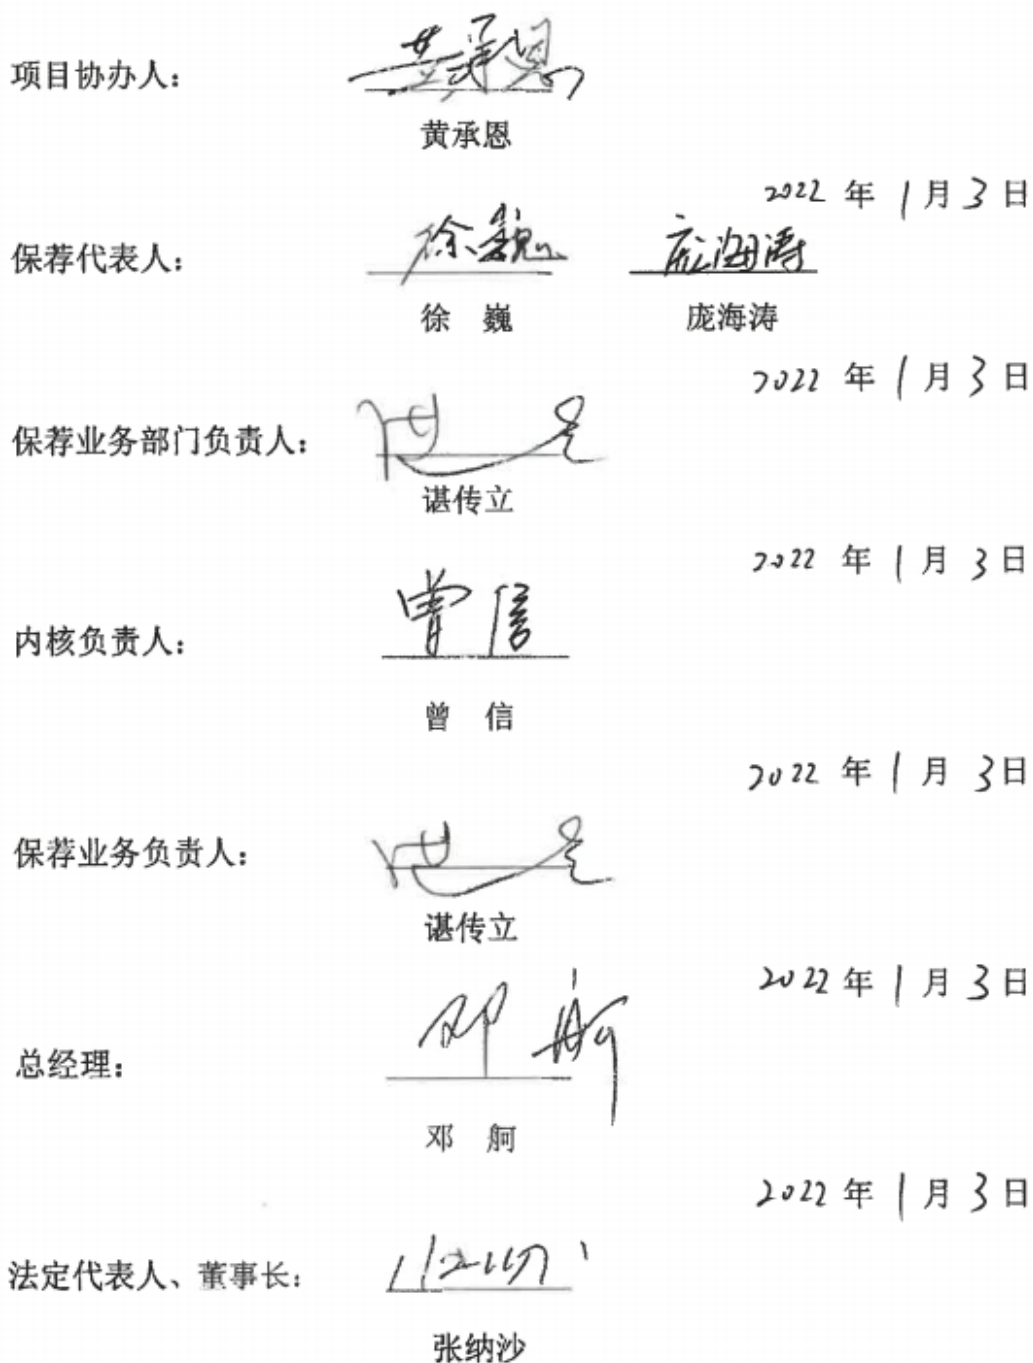 项目协办人: 黄承恩
黄承恩
2022 年 1 月 3 日
保荐代表人: 徐巍 庞海涛
徐 巍 庞海涛
2022 年 1 月 3 日
保荐业务部门负责人:
谌传立
2022 年 1 月 3 日
内核负责人: 曾信
曾 信
2022 年 1 月 3 日
保荐业务负责人:
谌传立
2022 年 1 月 3 日
总经理: 邓舸
邓 舸
2022 年 1 月 3 日
法定代表人、董事长:
张纳沙